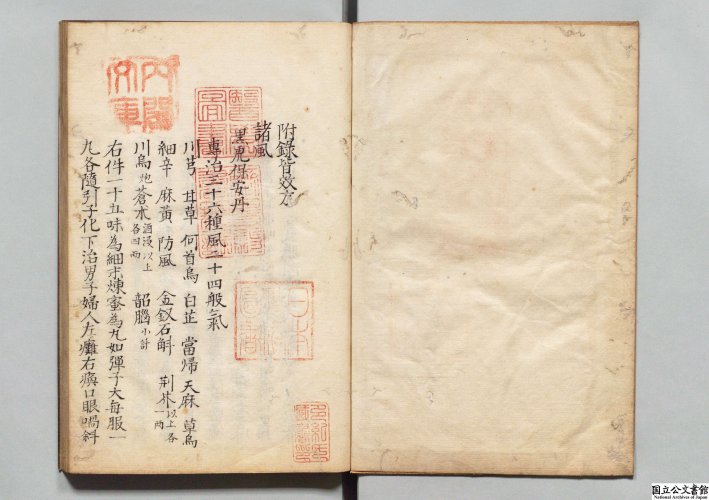 附錄皆效方
諸風
黑虎保安丹
專治三十六種風二十四般氣
川芎 甘草 何首烏 白芷 當歸 天麻 草烏
細辛 麻黃 防風 金釵石斛 荆芥以上各一兩
川烏炮 蒼朮酒浸以上各四兩 韶腦小許
右件一十五味為細末煉蜜為丸如彈子大每服一
丸各隨引子化下治男子婦人左癱右瘓口眼喎斜
內閣文庫
日本
國立公文書館
National Archives of Japan